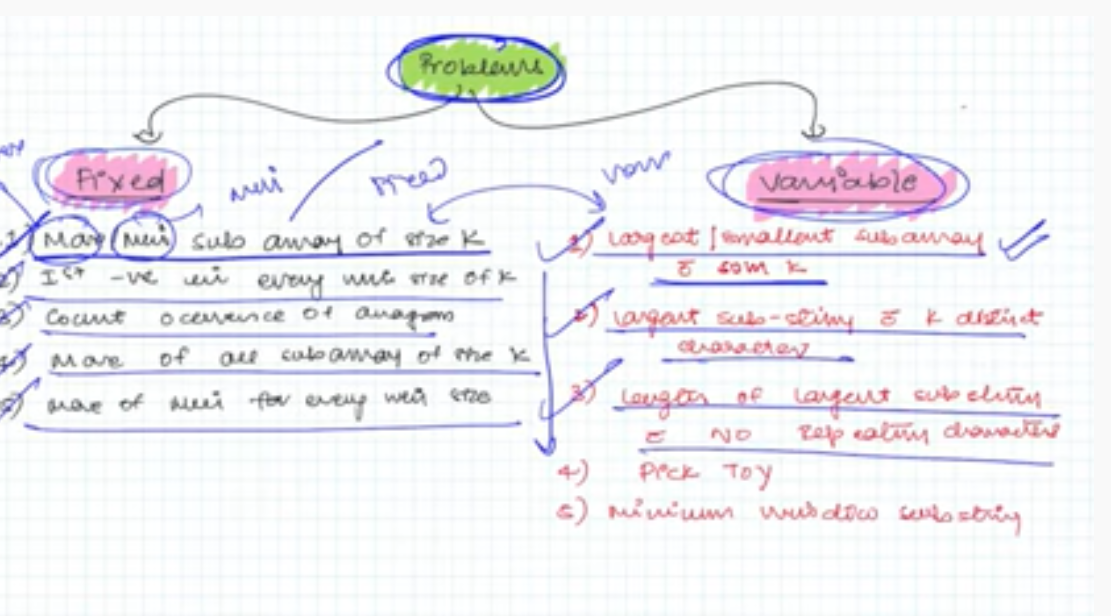 Problems
Fixed
Variable
Max Min sub array of size K
1st -ve in every win size of K
Count occurrence of anagram
Max of all subarray of size K
Max of min for every win size
1) Largest | smallest subarray
sum k
2) Largest sub-string K distinct
character
3) length of largest substring
NO repeating characters
4) Pick Toy
5) minimum window substring